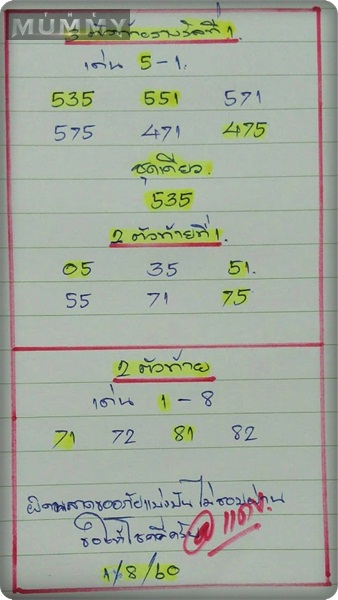 THE
MUMMY
3 ตัวท้ายรางวัลที่ 1.
เด่น 5-1.
535 551 571
575 471 475
ชุดเดียว.
535
2 ตัวท้ายที่ 1.
05 35 51.
55 71 75
2 ตัวท้าย
เด่น 1-8
71 72 81 82
ผิดพลาดขออภัยแบ่งปัน ไม่ชอบผ่าน
ขอให้โชคดีครับ @ แดง.
1/8/60